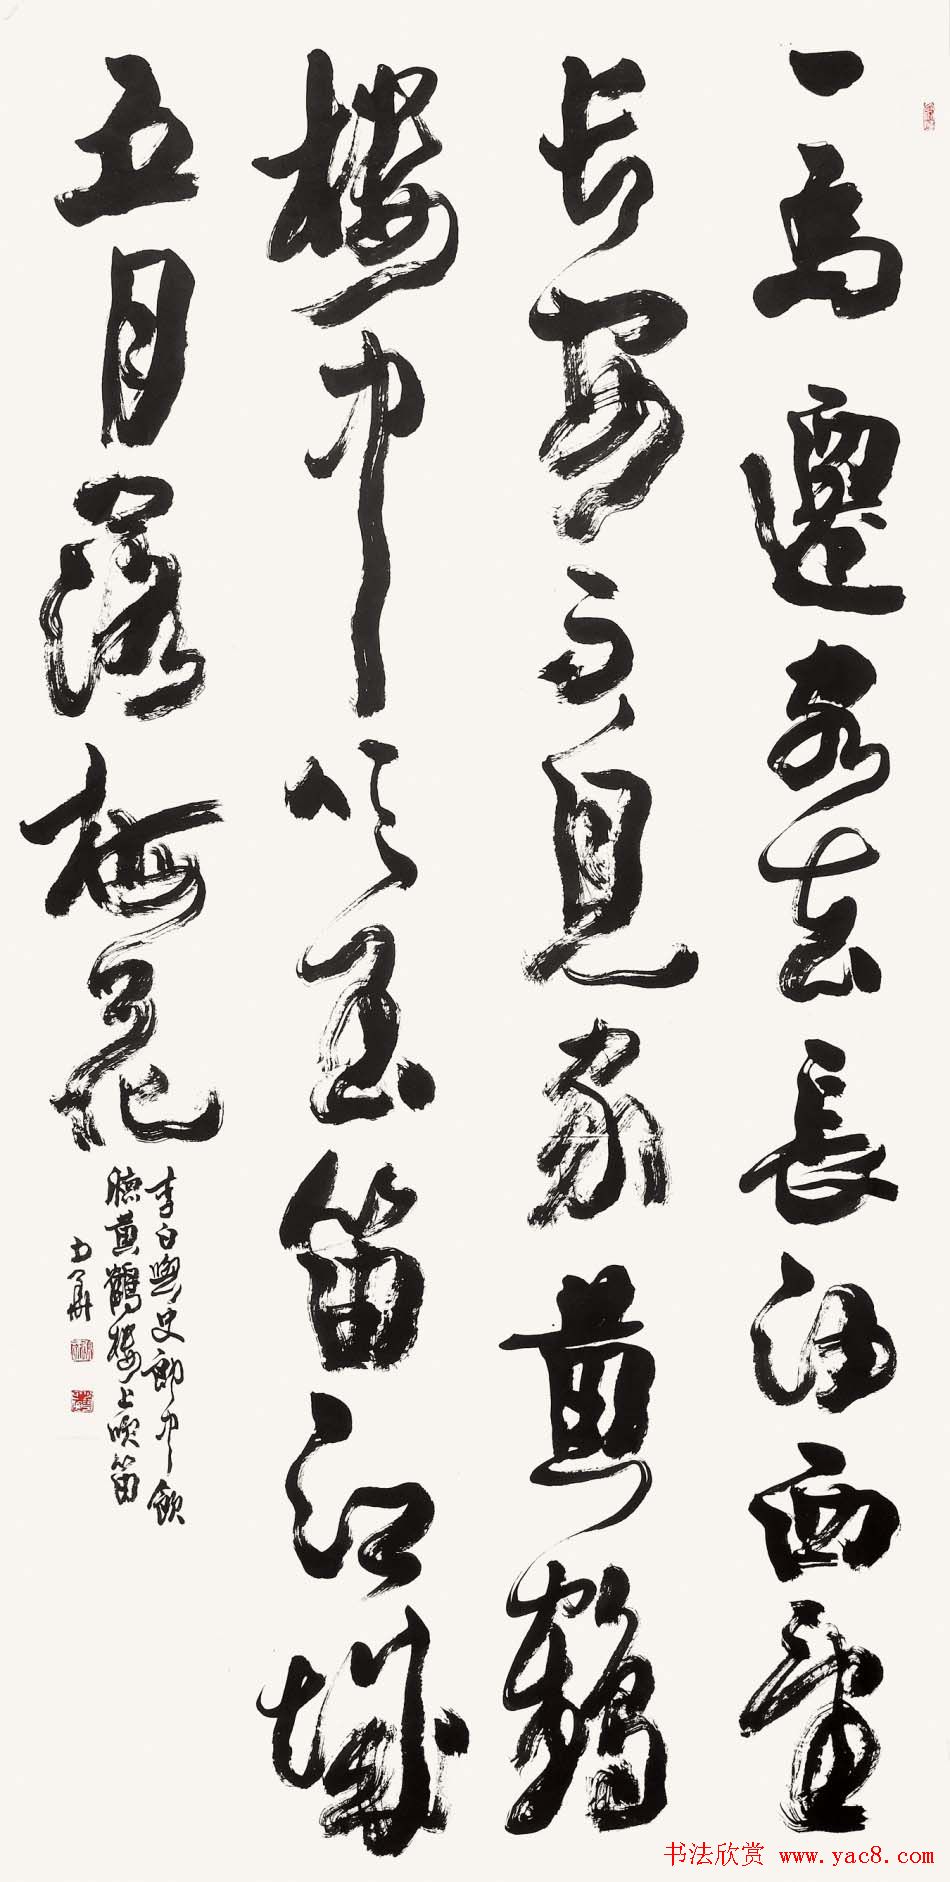 一為遷客去長沙西望
長安不見家黃鶴
樓中吹玉笛江城
五月落梅花
李白與史郎中飲
聽黃鶴樓上吹笛
書法欣賞 www.yac8.com